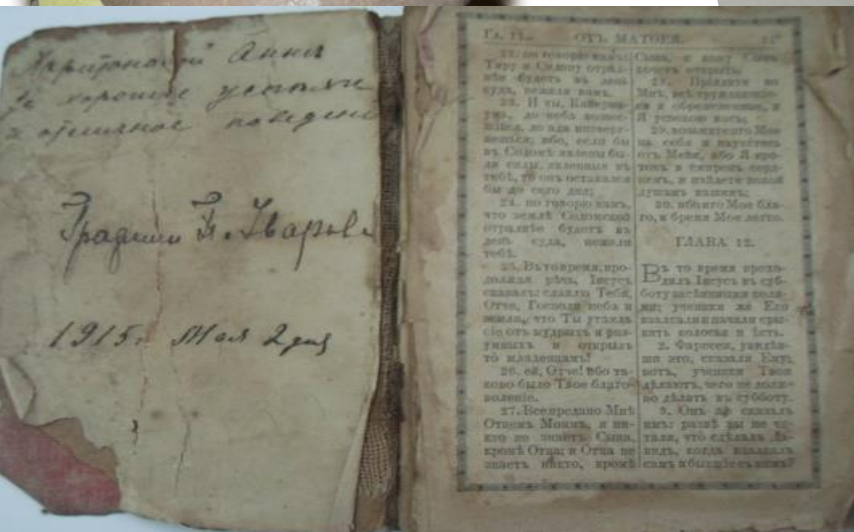 Харитоновой Анне
за хорошие успехи
и отличное поведение
Графиня П. Уварова
1915 г. Мая 2 дня
Гл. 11. ОТЪ МАТѲЕЯ.
22. но говорю вамъ:
Тиру и Сидону отрад-
нѣе будетъ въ день
суда, нежели вамъ.
23. И ты, Капернa-
умъ, до неба вознес-
шійся, до ада низверг-
нешься; ибо, если бы
въ Содомѣ явлены бы-
ли силы, явленныя въ
тебѣ, то онъ оставался
бы до сего дня;
24. но говорю вамъ,
что землѣ Содомской
отраднѣе будетъ въ
день суда, нежели
тебѣ.
25. Въ то время, про-
должая рѣчь, Іисусъ
сказалъ: славлю Тебя,
Отче, Господи неба и
земли, что Ты утаилъ
сіе отъ мудрыхъ и раз-
умныхъ и открылъ
то младенцамъ!
26. ей, Отче! ибо та-
ково было Твое благо-
воленіе.
27. Все предано Мнѣ
Отцемъ Моимъ, и ни-
кто не знаетъ Сына,
кромѣ Отца; и Отца не
знаетъ никто, кромѣ
Сына, и кому Сынъ
хочетъ открыть.
28. Пріидите ко
Мнѣ, всѣ труждающіе-
ся и обремененные, и
Я успокою васъ;
29. возьмите иго Мое
на себя и научитесь
отъ Меня, ибо Я кро-
токъ и смиренъ серд-
цемъ, и найдете покой
душамъ вашимъ;
30. ибо иго Мое бла-
го, и бремя Мое легко.
ГЛАВА 12.
Въ то время прохо-
дилъ Іисусъ въ суб-
боту засѣянными поля-
ми; ученики же Его
взалкали и начали сры-
вать колосья и ѣсть.
2. Фарисеи, увидѣв-
ши это, сказали Ему:
вотъ, ученики Твои
дѣлаютъ, чего не долж-
но дѣлать въ субботу.
3. Онъ же сказалъ
имъ: развѣ вы не чи-
тали, что сдѣлалъ Да-
видъ, когда взалкалъ
самъ и бывшіе съ нимъ?